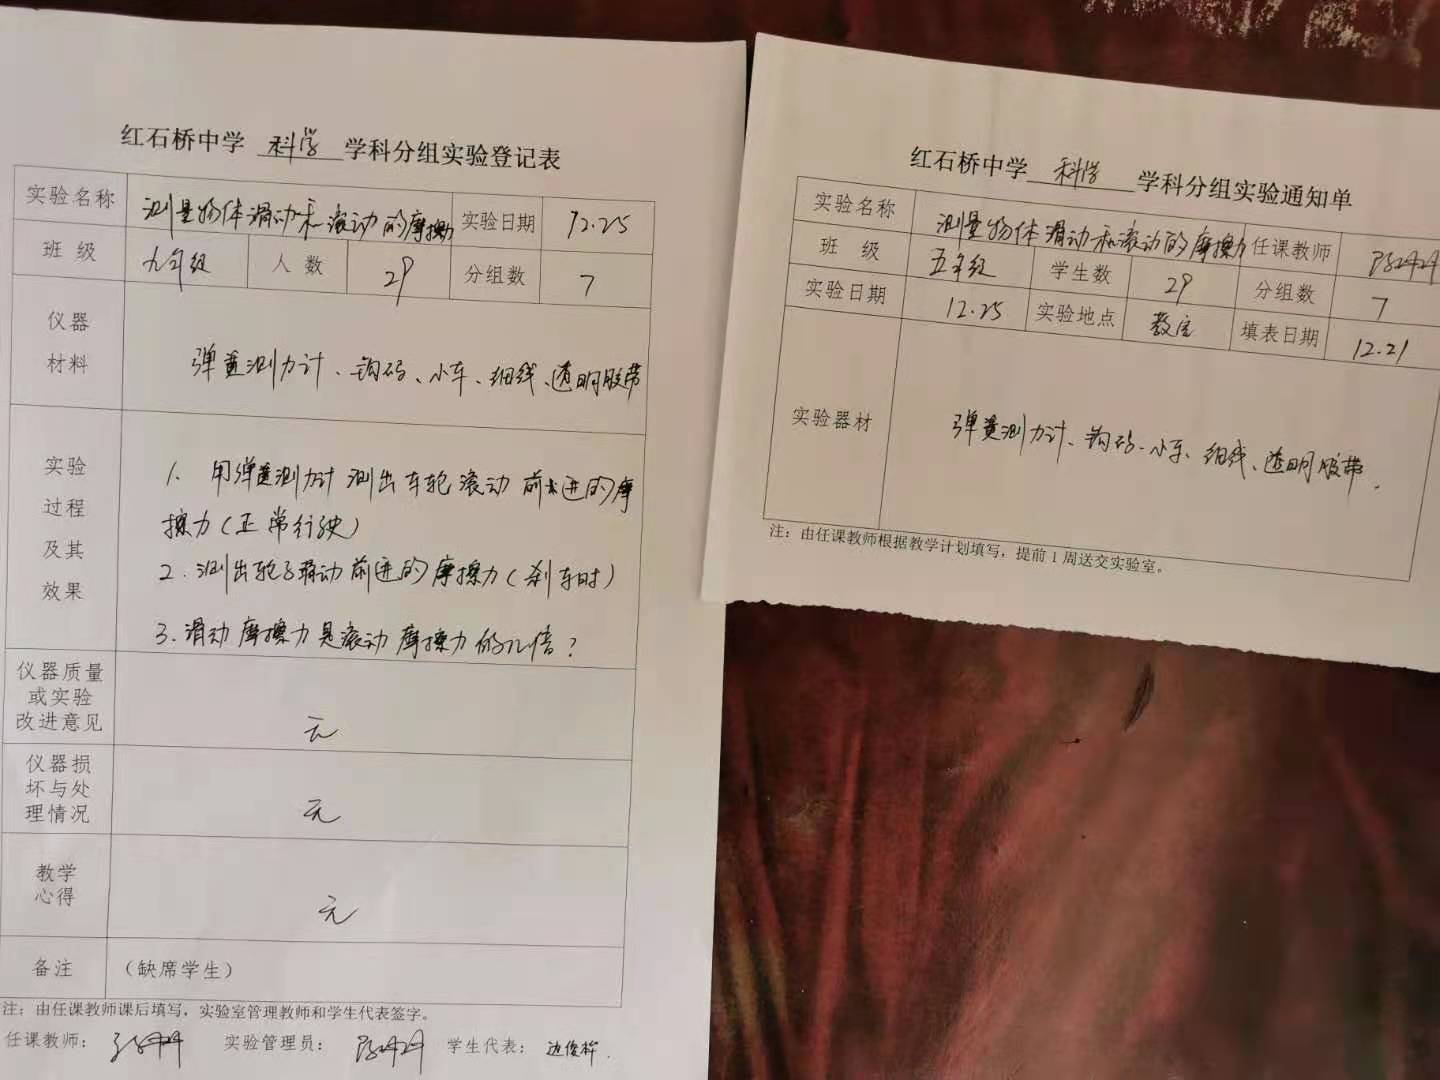 红石桥中学 科学 学科分组实验登记表
实验名称 测量物体滑动和滚动的摩擦力 实验日期 12.25
班 级 九年级 人 数 29 分组数 7
仪器
材料
弹簧测力计、钩码、小车、细线、透明胶带
实验
过程
及其
效果
1. 用弹簧测力计测出车轮滚动前进的摩
擦力(正常行驶)
2.测出轮子滑动前进的摩擦力(刹车时)
3.滑动摩擦力是滚动摩擦力的几倍?
仪器质量
或实验
改进意见
无
仪器损
坏与处
理情况
无
教学
心得
无
备注 (缺席学生)
注:由任课教师课后填写,实验室管理教师和学生代表签字。
任课教师: 实验管理员: 学生代表:
红石桥中学 科学 学科分组实验通知单
实验名称 测量物体滑动和滚动的摩擦力 任课教师
班 级 五年级 学生数 29 分组数 7
实验日期 12.25 实验地点 教室 填表日期 12.21
实验器材 弹簧测力计、钩码、小车、细线、透明胶带.
注:由任课教师根据教学计划填写,提前1周送交实验室。